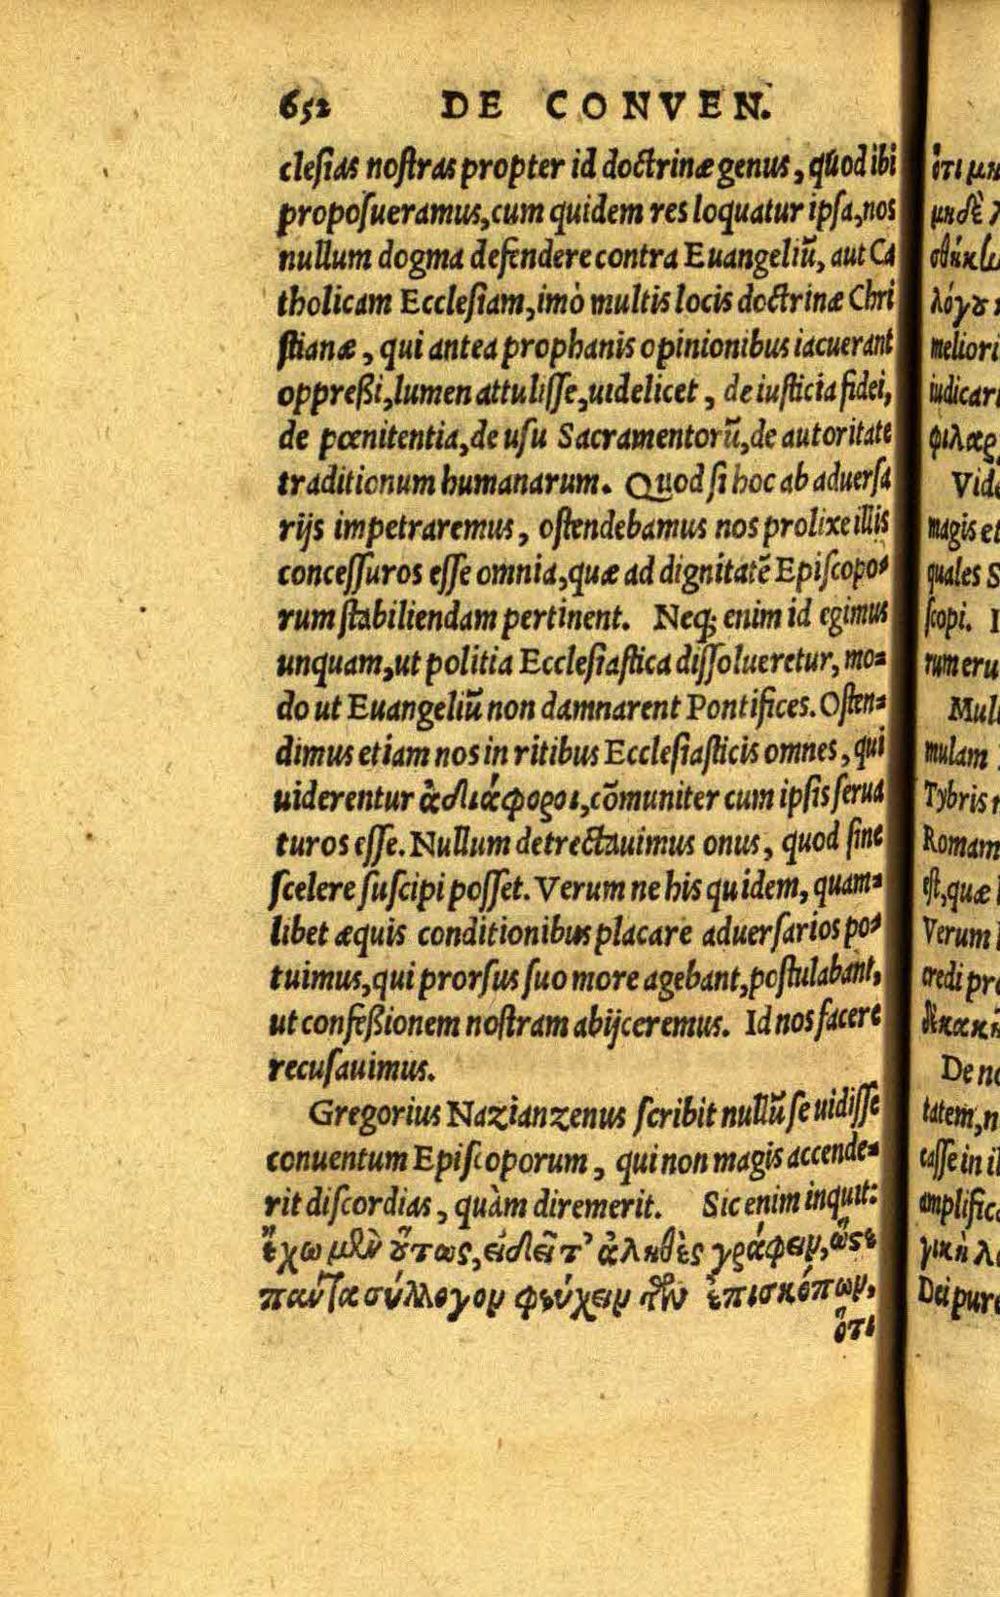 652 DE CONVEN.
clesias nostras propter id doctrinæ genus, quod ibi
proposueramus, cum quidem res loquatur ipsa, nos
nullum dogma defendere contra Euangeliũ, aut Ca
tholicam Ecclesiam, imò multis locis doctrinæ Chri
stianæ, qui antea prophanis opinionibus iacuerant
oppreßi, lumen attulisse, uidelicet, de iusticia fidei,
de pœnitentia, de usu Sacramentorũ, de autoritate
traditionum humanarum. Quod si hoc ab aduersa
rijs impetraremus, ostendebamus nos prolixe illis
concessuros esse omnia, quæ ad dignitatẽ Episcopo-
rum stabiliendam pertinent. Neq; enim id egimus
unquam, ut politia Ecclesiastica dissolueretur, mo-
do ut Euangeliũ non damnarent Pontifices. Osten-
dimus etiam nos in ritibus Ecclesiasticis omnes, qui
uiderentur ἀδιάφοροι, cõmuniter cum ipsis serua
turos esse. Nullum detrectauimus onus, quod sine
scelere suscipi posset. Verum ne his quidem, quam-
libet æquis conditionibus placare aduersarios po-
tuimus, qui prorsus suo more agebant, postulabant,
ut confeßionem nostram abijceremus. Id nos facere
recusauimus.
Gregorius Nazianzenus scribit nullũ se uidisse
conuentum Episcoporum, qui non magis accende-
rit discordias, quàm diremerit. Sic enim inquit:
ἔχω μὲν οὕτως, εἰ δεῖ τ' ἀληθὲς γράφειν, ὥστε
πάντα σύλλογον φεύγειν τῶν ἐπισκόπων,
ὅτι
ὅτι μη
μηδὲ
λόγου
meliori
iudicari
φιλαρ
Vide
magis et
quales S
scopi. I
rum eru
Mul
mulam
Tybris
Romam
est, quæ
Verum
credi pro
De no
tatem, n
casse in il
amplific
γικὴ λ
Dei pure